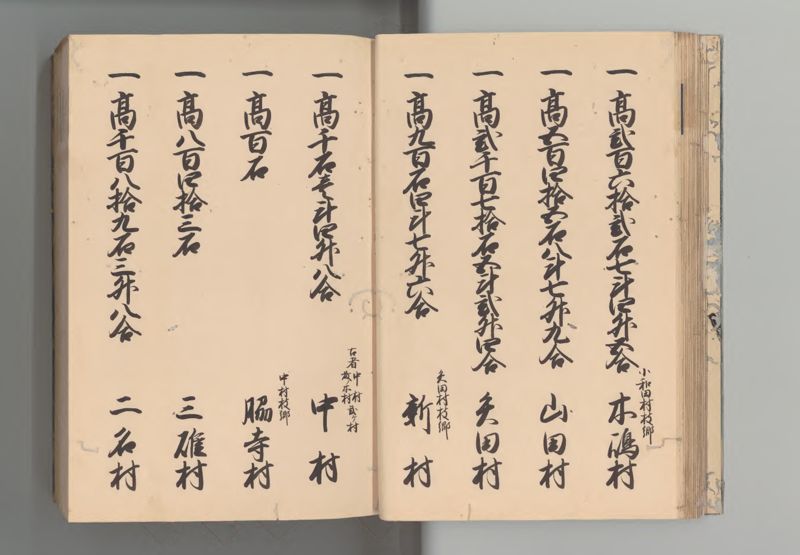 一 高弐百六拾弐石七斗四升五合
小和田村枝郷
木嶋村
一 高五百四拾五石八斗七升九合 山田村
一 高弐千百七拾石五斗弐升四合 矢田村
一 高九百石四斗七升六合
矢田村枝郷
新村
一 高千石壱斗四升八合
古者中村
中村
一 高百石
中村枝郷
脇寺村
一 高八百四拾三石 三碓村
一 高千百八拾九石三升八合 二名村